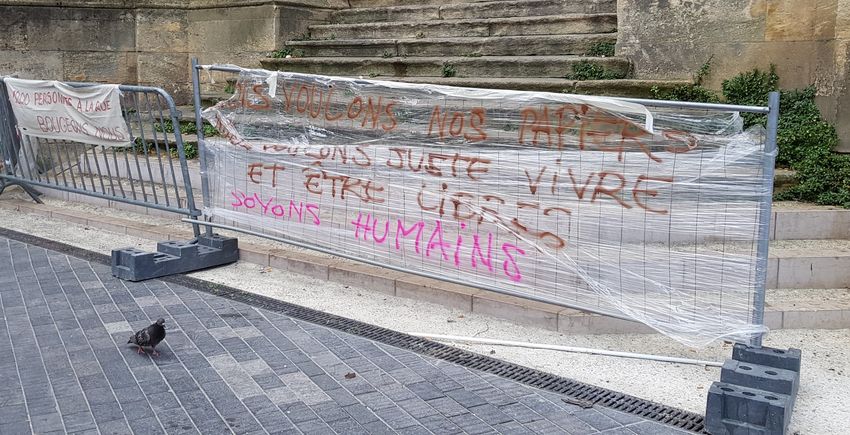 1200 PERSONNE A LA RUE
BOUGEONS NOUS
VOULONS NOS PAPIERS
JUSTE VIVRE
ET ÊTRE LIBRES
SOYONS HUMAINS